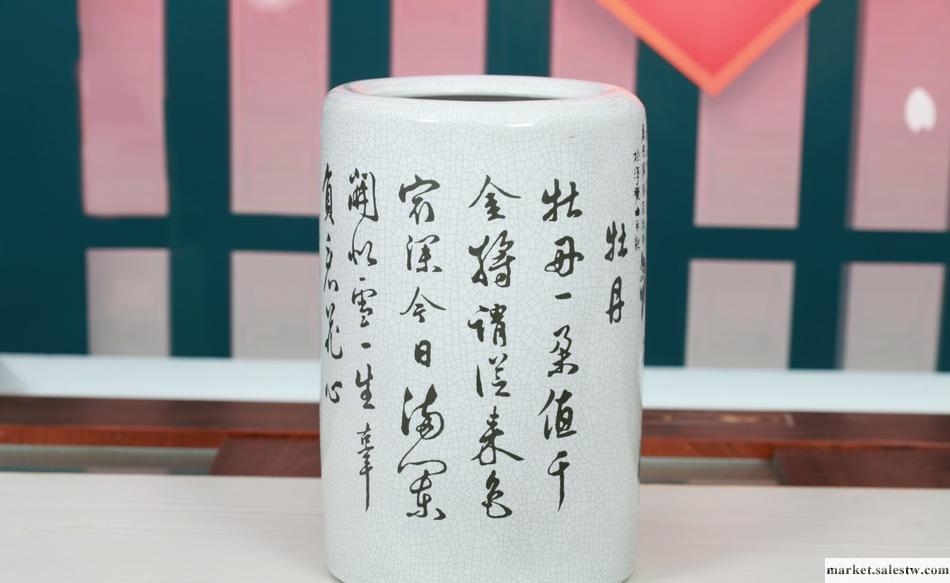 牡丹
牡丹一朵值千
金將謂從来色
㝡深今日滿闌
開似雪一生辜
負看花心
market.salestw.com